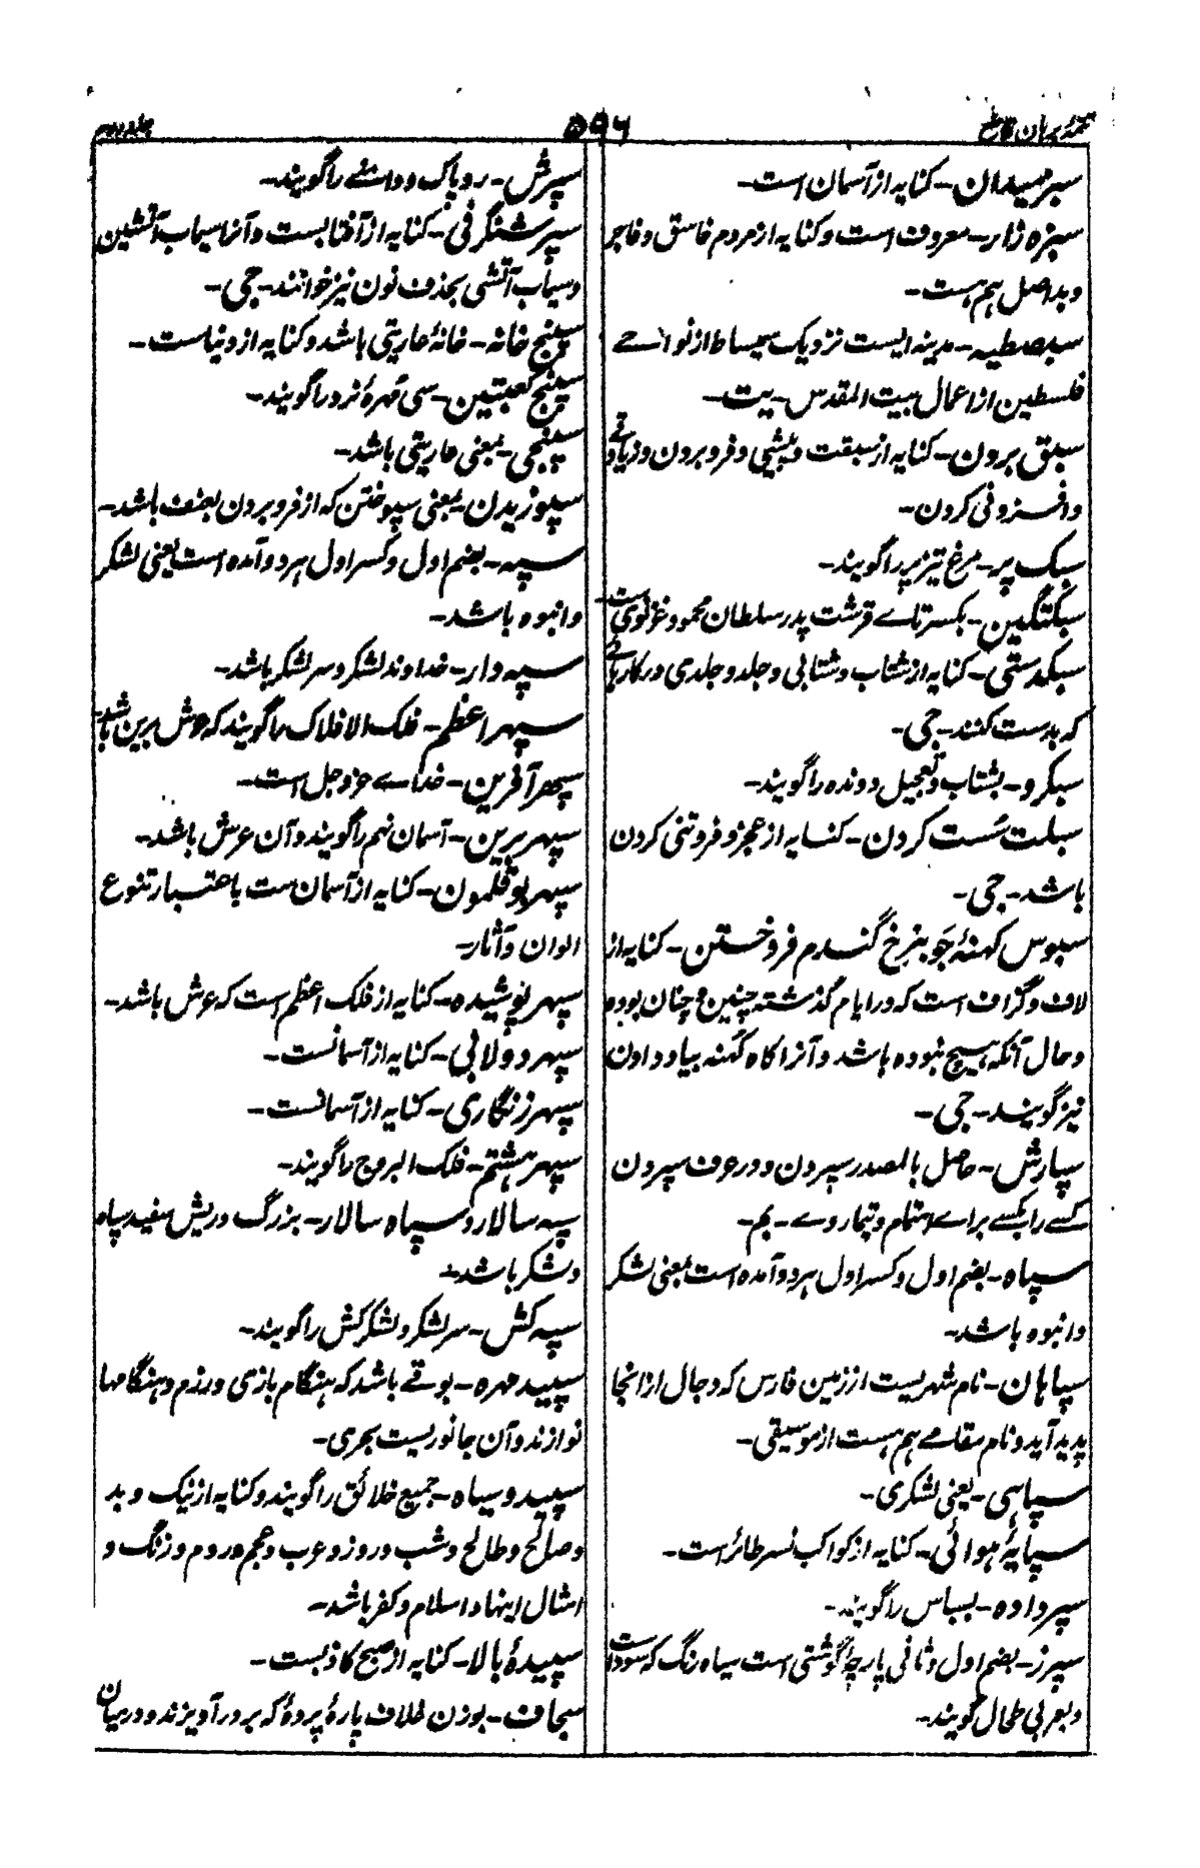 تتمهٔ برہان قاطع
۵۹۶
جلد دوم
سبز میدان - کنایه از آسمان است -
سبزه زار - معروف است و کنایه از مردم فاسق و فاجر
و بد اصل ہم ہست -
سبصطیه - مدینه ایست نزدیک سمیساط از نواحے
فلسطین از اعمال بیت المقدس - یت -
سبق بردن - کنایه از سبقت و پیشی و فرو بردن و زیادتے
و افزونی کردن -
سبک پر - مرغ تیز پر را گویند -
سبکتگین - بکسر تاے قرشت پدر سلطان محمود غزنوی است
سبکدستی - کنایه از شتاب و شتابی و جلد و جلدی در کارہائے
که بدست کنند - جی -
سبکرو - بشتاب و تعجیل دونده را گویند -
سبلت سست کردن - کنایه از عجز و فروتنی کردن
باشد - جی -
سبوس کہنهٔ جو بنرخ گندم فروختن - کنایه از
لاف و گزاف است که در ایام گذشته چنین و چنان بوده
و حال آنکه ہیچ نبوده باشد و آنرا کاه کہنه بباد دادن
نیز گویند - جی -
سپارش - حاصل بالمصدر سپردن و در عرف سپردن
کسے را بکسے براے اہتمام و تیمار وے - بم -
سپاه - بضم اول و کسر اول ہر دو آمده است بمعنی لشکر
و انبوه باشد -
سپاہان - نام شہریست از زمین فارس که دجال از انجا
پدید آید و نام مقامے ہم ہست از موسیقی -
سپاہی - یعنی لشکری -
سپایهٔ ہوائی - کنایه از کواکب نسر طائر است -
سپرداده - بسباس را گویند -
سپرز - بضم اول و ثانی پارچه گوشتی است سیاه رنگ که سودا است
و بعربی طحال گویند -
سپرش - روپاک و دامنے را گویند -
سپر شنگرفی - کنایه از آفتابست و آنرا سیماب آتشین
و سیماب آتشی بحذف نون نیز خوانند - جی -
سپنج خانه - خانهٔ عاریتی باشد و کنایه از دنیاست -
سپنج کعبتین - سی مہرهٔ نرد را گویند -
سپنجی - بمعنی عاریتی باشد -
سپوزیدن - بمعنی سپوختن که از فرو بردن بعنف باشد -
سپه - بضم اول و کسر اول ہر دو آمده است یعنی لشکر
و انبوه باشد -
سپه دار - خداوند لشکر و سر لشکر باشد -
سپہر اعظم - فلک الافلاک را گویند که عرش برین باشد
سپہر آفرین - خداے عز و جل است -
سپہر برین - آسمان نہم را گویند و آن عرش باشد -
سپہر بوقلمون - کنایه از آسمان ست باعتبار تنوع
الوان و آثار -
سپہر پوشیده - کنایه از فلک اعظم است که عرش باشد -
سپہر دولابی - کنایه از آسمانست -
سپہر زنگاری - کنایه از آسمانست -
سپہر ہشتم - فلک البروج را گویند -
سپه سالار و سپاه سالار - بزرگ و ریش سفید سپاه
و لشکر باشد -
سپه کش - سر لشکر و لشکر کش را گویند -
سپید مہره - بوقے باشد که ہنگام بازی و رزم و ہنگامہا
نوازند و آن جانوریست بحری -
سپید و سیاه - جمیع خلائق را گویند و کنایه از نیک و بد
و صالح و طالح و شب و روز و عرب و عجم و روم و زنگ و
امثال اینہا و اسلام و کفر باشد -
سپیدهٔ بالا - کنایه از صبح کاذبست -
سجاف - بوزن غلاف پارهٔ پردهٔ که بر در آویزند و درمیان